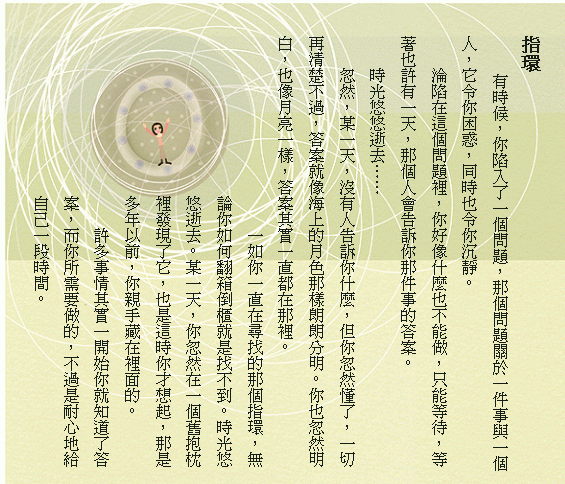 指環
有時候，你陷入了一個問題，那個問題關於一件事與一個
人，它令你困惑，同時也令你沉靜。
淪陷在這個問題裡，你好像什麼也不能做，只能等待，等
著也許有一天，那個人會告訴你那件事的答案。
時光悠悠逝去……
忽然，某一天，沒有人告訴你什麼，但你忽然懂了，一切
再清楚不過，答案就像海上的月色那樣朗朗分明。你也忽然明
白，也像月亮一樣，答案其實一直都在那裡。
一如你一直在尋找的那個指環，無
論你如何翻箱倒櫃就是找不到。時光悠
悠逝去。某一天，你忽然在一個舊抱枕
裡發現了它，也是這時你才想起，那是
多年以前，你親手藏在裡面的。
許多事情其實一開始你就知道了答
案，而你所需要做的，不過是耐心地給
自己一段時間。